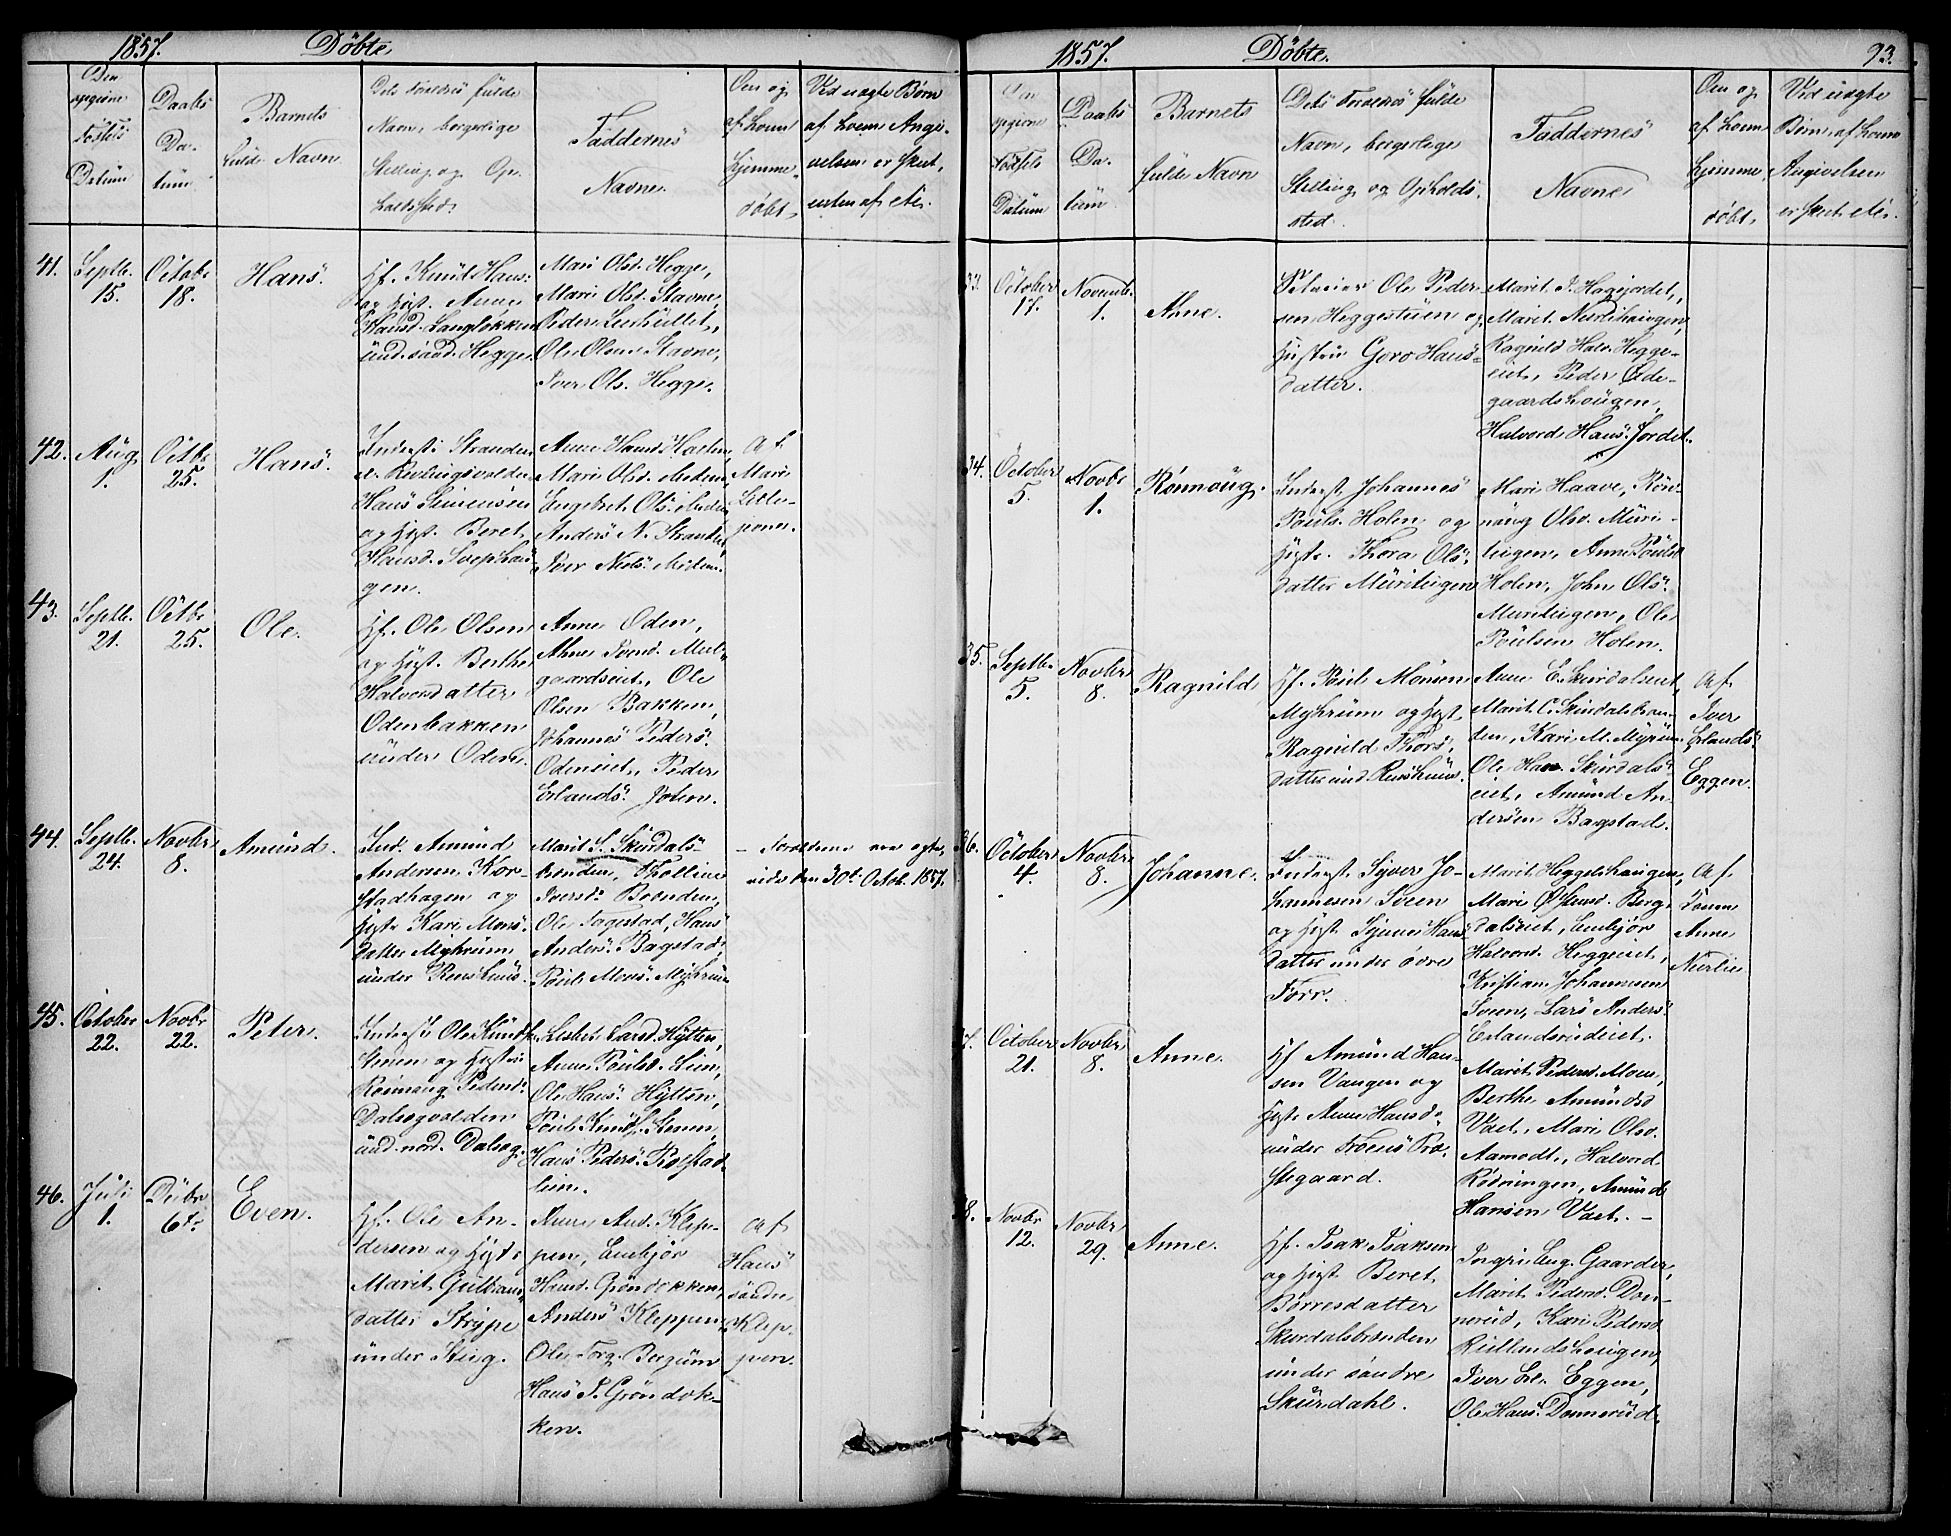 1857. Döbte.
Den opgivne Fødsels Datum
Daabs Datum.
Barnets fulde Navn
Dets Forældres fulde Navn, borgerlige Stilling og Opholdssted.
Faddernes Navne.
Om og af hvem hjemmedøbt.
Ved uægte Børn af hvem Angivelsen er skeet,
41.
Septb. 15.
Octobr 18.
Hans.
Gf. Knud Hans.
og Hgst. Anne
Hansd. Langløkken
und. Hegge.
Mari Olsd. Hegge,
Mari Olsd. Stavne,
Peder
Ole Olsen Stavne,
Iver Ols. Hegge.
42.
Aug 1.
Octbr 25.
Hans.
Inderst
Hans Simensen
og Hgst. Beret
Hansd. Svephau
gen.
Anne Hansd.
Mari Olsd.
Engebret Ols.
Anders N. Stranden,
Iver Niels.
Af
Mari
Lille-
43.
Septb. 21.
Octbr 25.
Ole.
Gf. Ole Olsen
og Hgst. Berthe
Halvordatter
Odenbakken
under Oden.
Anne Oden,
Anne Iversd. Mel-
gaardseiet, Ole
Olsen Bakken,
Johannes Peders.
Odeneiet, Peder
Erlands.
44.
Septb. 24.
Novbr 8.
Amund.
Ind. Amund
Andersen Kor-
stadhagen og
Hgst. Kari Mons-
datter Myhrum
under Krushuus.
Marit S. Skurdals-
brenden, Tholline
Iversd. Brenden,
Ole Fagestad, Hans
Anders. Bagstad,
Poul Mons. Myhrum
- Forældrene ere ægte-
viede den 30te Octob. 1857.
45.
October 22.
Novbr 22.
Peter.
Inderst Ole Knuds.
Stenen og Hgst.
Rönnaug Pedersd.
Dalsegvolden
und. nord. Dalseg.
Lisbet Larsd. Hytten,
Anne Poulsd. Lien,
Ole Hans. Hytten,
Poul Knuds. Stenen
Hans Peders. Rolstad-
lien.
46.
Juli 1.
Decbr 6te
Even.
Gf. Ole An-
dersen og Hgst.
Marit Gulbrands
datter Strype
under Stug.
Anne And. Klep-
pen, Embjør
Hansd. Grøndokken,
Anders Kleppen,
Ole Torg. Bergum
Hans P. Grøndok-
ken.
Af
Hans
søndre
Klep-
pen.
1857. Döbte. 93.
Den opgivne Fødsels Datum
Daabs Datum.
Barnets fulde Navn
Dets Forældres fulde Navn, borgerlige Stilling og Opholdssted.
Faddernes Navne
Om og af hvem hjemmedøbt.
Ved uægte Børn, af hvem Angivelsen er skeet
33.
October 17.
Novemb. 1.
Anne.
Selveier Ole Peder-
sen Heggestuen og
Hustru Goro Hans-
datter.
Marit P. Hagejordet,
Marit Nerlihaugen,
Ragnild Halv. Hegge-
eiet, Peder Øde-
gaardshougen,
Halvord Hans. Jordet.
34.
October 5.
Novbr 1.
Rönnoug.
Inderst Johannes
Pouls. Holen og
Hgst. Thora Ols-
datter Muritegen
Mari Haave, Rön-
naug Olsd. Muri-
tegen, Anne Poulsd
Holen, John Ols.
Muritegen, Ole
Poulsen Holen.
35.
Septbr 5.
Novbr 8.
Ragnild
Gf. Poul Monsen
Myhrum og Hgst
Ragnild Thors-
datter und. Krushuus.
Anne E. Skurdalseiet,
Marit C. Skurdalsbren-
den, Kari M. Myrum.
Ole Hans. Skurdals-
eiet, Amund An-
dersen Bagstad.
Af
Iver
Erlands.
Eggen.
36.
October 4.
Novbr 8.
Johanne.
Inderst Syver Jo-
hannesen Sveen
og Hgst. Hans-
datter under øvre
Forr.
Marit Heggelihaugen,
Mari Ostensd. Berg-
dalseiet, Embjør
Halvord. Heggeeiet,
Kristian Johannesen
Sveen, Lars Anders.
Erlandsrudeiet.
Af
Anne
Nerlie
37.
October 21.
Novbr 8.
Anne.
Gf. Amund Han-
sen Vangen og
Hgst. Anne Hansd.
under Froens Præ-
stegaard.
Marit Pedersd. Moen,
Berthe Amundsd
Vaet, Mari Olsd.
Aamodt, Halvord
Rødningen, Amund
Hansen Vaet. -
38.
Novbr 12.
Novbr 29.
Anne.
Gf. Isak Isaksen
og Hgst. Beret
Børresdatter
Skurdalsbrenden
under søndre
Skurdahl.
Ingri Eng. Gaarder,
Marit Pedersd. Don-
nerud, Kari Pedersd
Ruslandshougen,
Iver Er. Eggen,
Ole Hans. Donnerud.